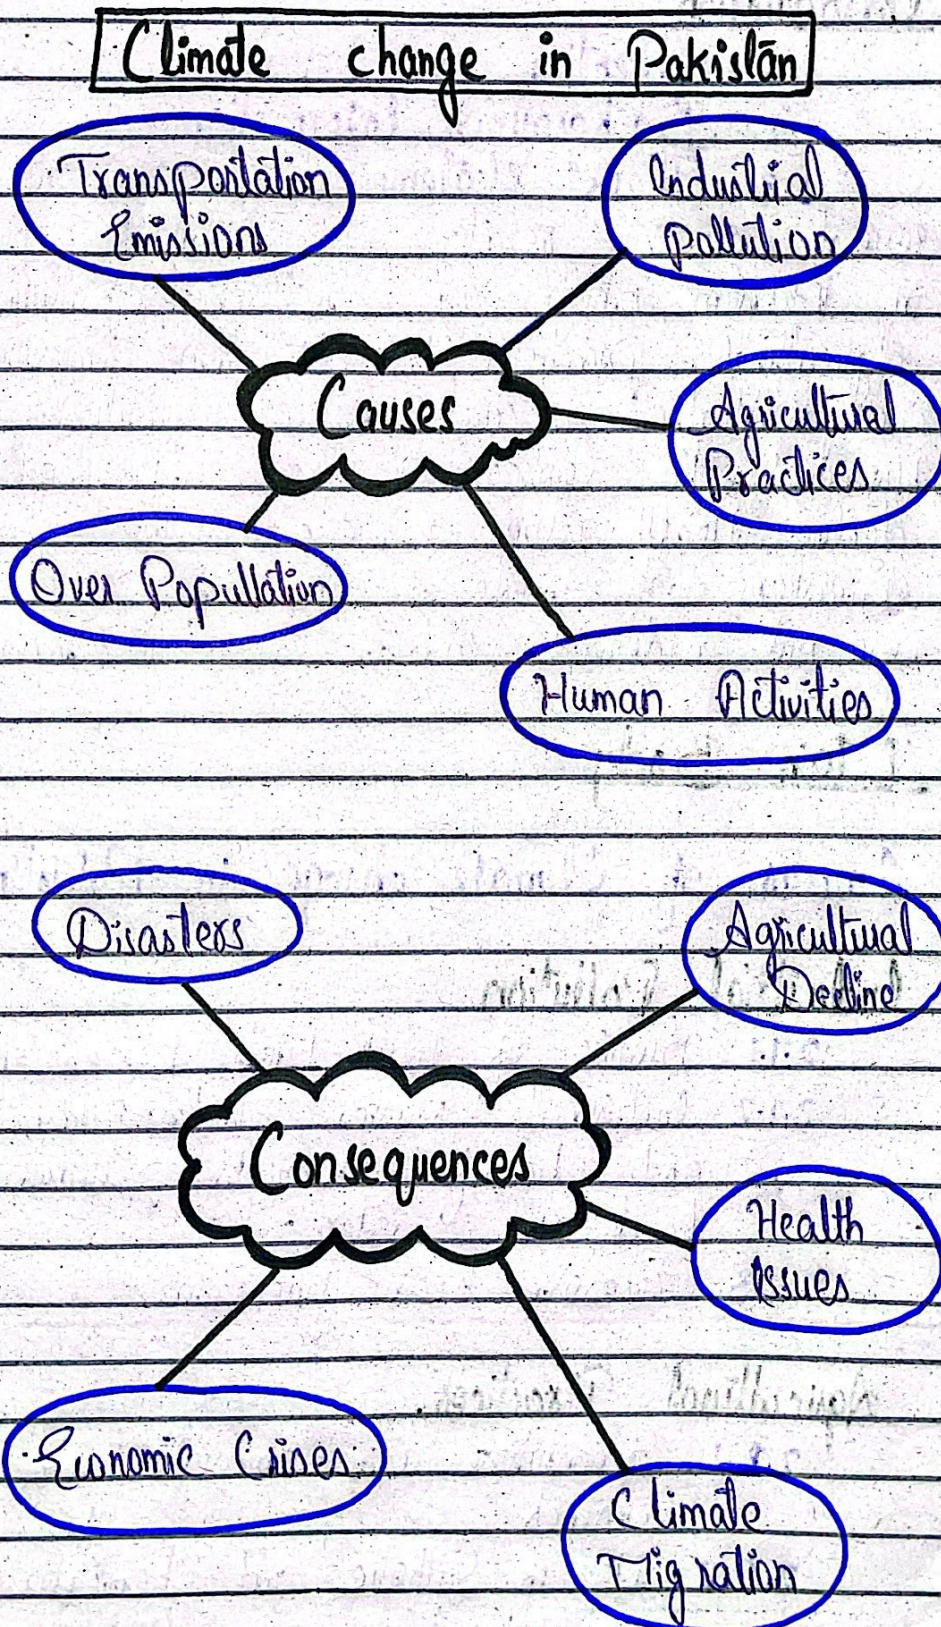 Climate change in Pakistan
Transportation
Emissions
Industrial
Pollution
Causes
Agricultural
Practices
Over Popullation
Human Activities
Disasters
Agricultural
Decline
Consequences
Health
Issues
Economic Crises
Climate
Migration